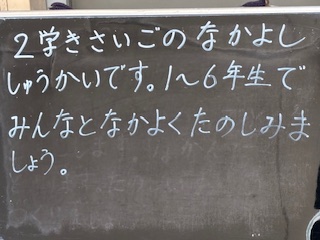 2学きさいごのなかよし
しゅうかいです。1~6年生で
みんなとなかよくたのしみま
しょう。